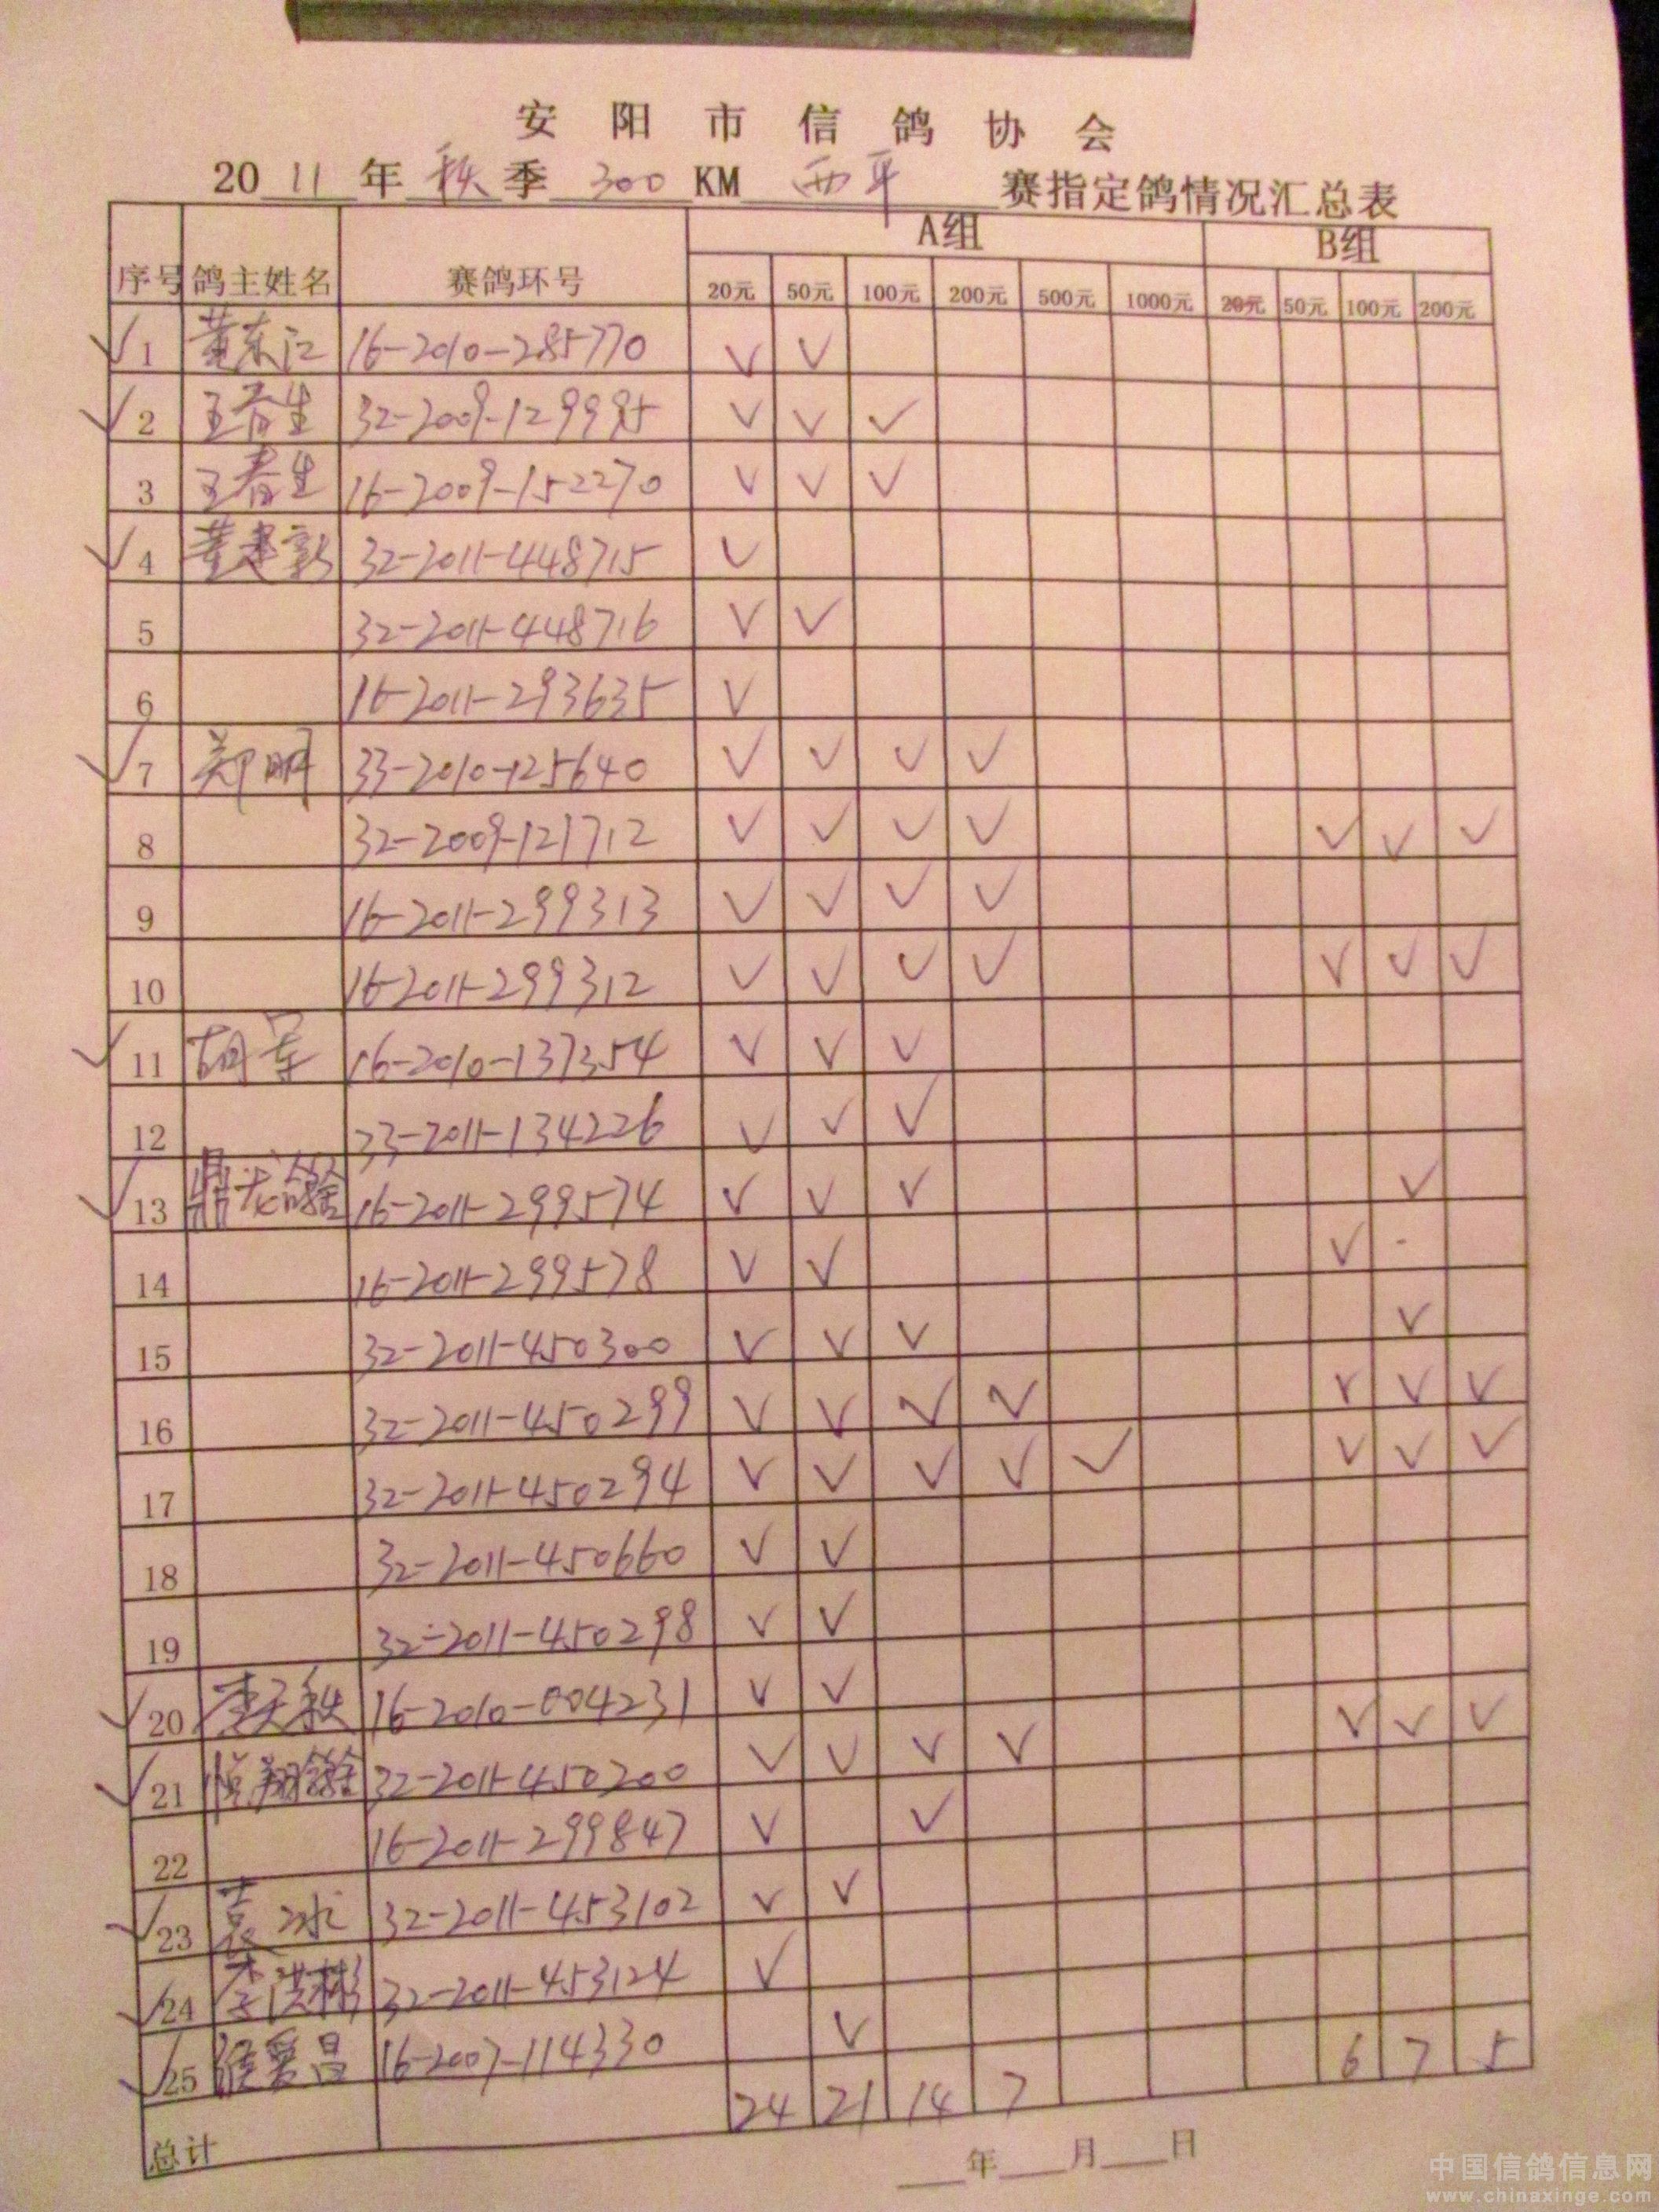 安阳市信鸽协会
2011年秋季300KM西平赛指定鸽情况汇总表
序号 鸽主姓名 赛鸽环号 A组 B组
20元 50元 100元 200元 500元 1000元 20元 50元 100元 200元
√1 董东江 16-2010-285770 √ √
√2 王春生 32-2009-129995 √ √ √
3 王春生 16-2009-152270 √ √ √
√4 董建新 32-2011-448715 √
5 32-2011-448716 √ √
6 16-2011-293635 √
√7 郑明 33-2010-125640 √ √ √ √
8 32-2009-121712 √ √ √ √ √ √ √
9 16-2011-299313 √ √ √ √
10 16-2011-299312 √ √ √ √ √ √ √
√11 胡军 16-2010-137354 √ √ √
12 33-2011-134226 √ √ √
√13 鼎龙鸽舍 16-2011-299574 √ √ √ √
14 16-2011-299578 √ √ √
15 32-2011-450300 √ √ √ √
16 32-2011-450299 √ √ √ √ √ √ √
17 32-2011-450294 √ √ √ √ √ √ √ √
18 32-2011-450660 √ √
19 32-2011-450298 √ √
√20 李天秋 16-2010-004231 √ √
√21 悦翔鸽舍 32-2011-450200 √ √ √ √ √ √ √
22 16-2011-299847 √ √
√23 袁冰 32-2011-453102 √ √
√24 李洪彬 32-2011-453124 √
√25 爱昌 16-2007-114330 √
6 7 5
总计 24 21 14 7
年 月 日
中国信鸽信息网
www.chinaxinge.com